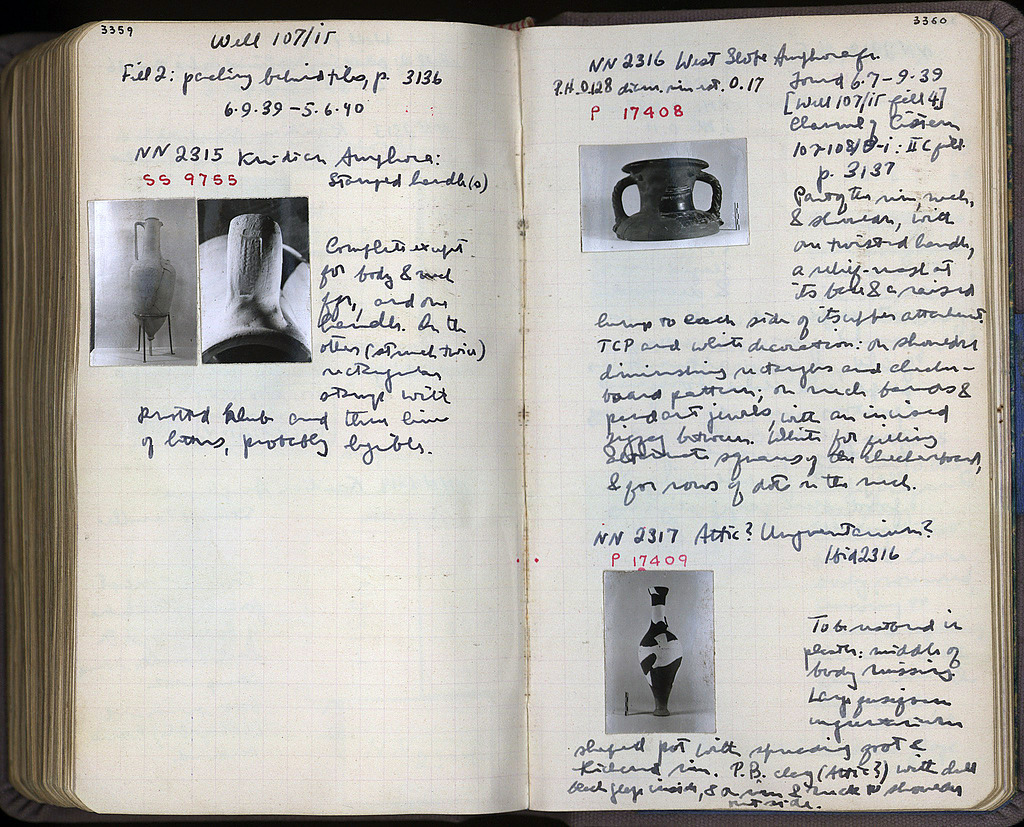 3359
Well 107/15
Fill 2: packing behind tiles, p. 3136
6·9·39 – 5·6·40
NN 2315 Knidian Amphora:
SS 9755
Stamped handle(s)
Complete except
for body & neck
frr, and one
handle. On the
other (struck twice)
rectangular
stamp with
knotted klub and three lines
of letters, probably legible.
3360
NN 2316 West Slope Amphora fr.
P.H. 0.128 diam. rim rest. 0.17
P 17408
Found 6·7–9·39
[Well 107/15 fill 4]
Channel of Cistern
107-108/ : II C fill
p. 3137
Part of the rim, neck,
& shoulder, with
one twisted handle,
a relief-mask at
its base & a raised
lump to each side of its upper attachment.
TCP and white decoration: on shoulder
diminishing rectangles and checker-
board pattern; on neck bands &
pendant jewels, with an incised
zigzag between. White for filling
alternate squares of the checkerboard,
& for rows of dots on the neck.
NN 2317 Attic? Unguentarium?
P 17409
Ibid 2316
To be restored in
plaster: middle of
body missing
Large fusiform
unguentarium
shaped pot with spreading foot &
thickened rim. P.B. clay (Attic?) with dull
black glaze inside, & on rim & neck to shoulder
outside.